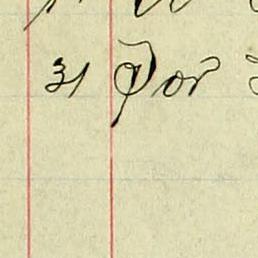 31 Por